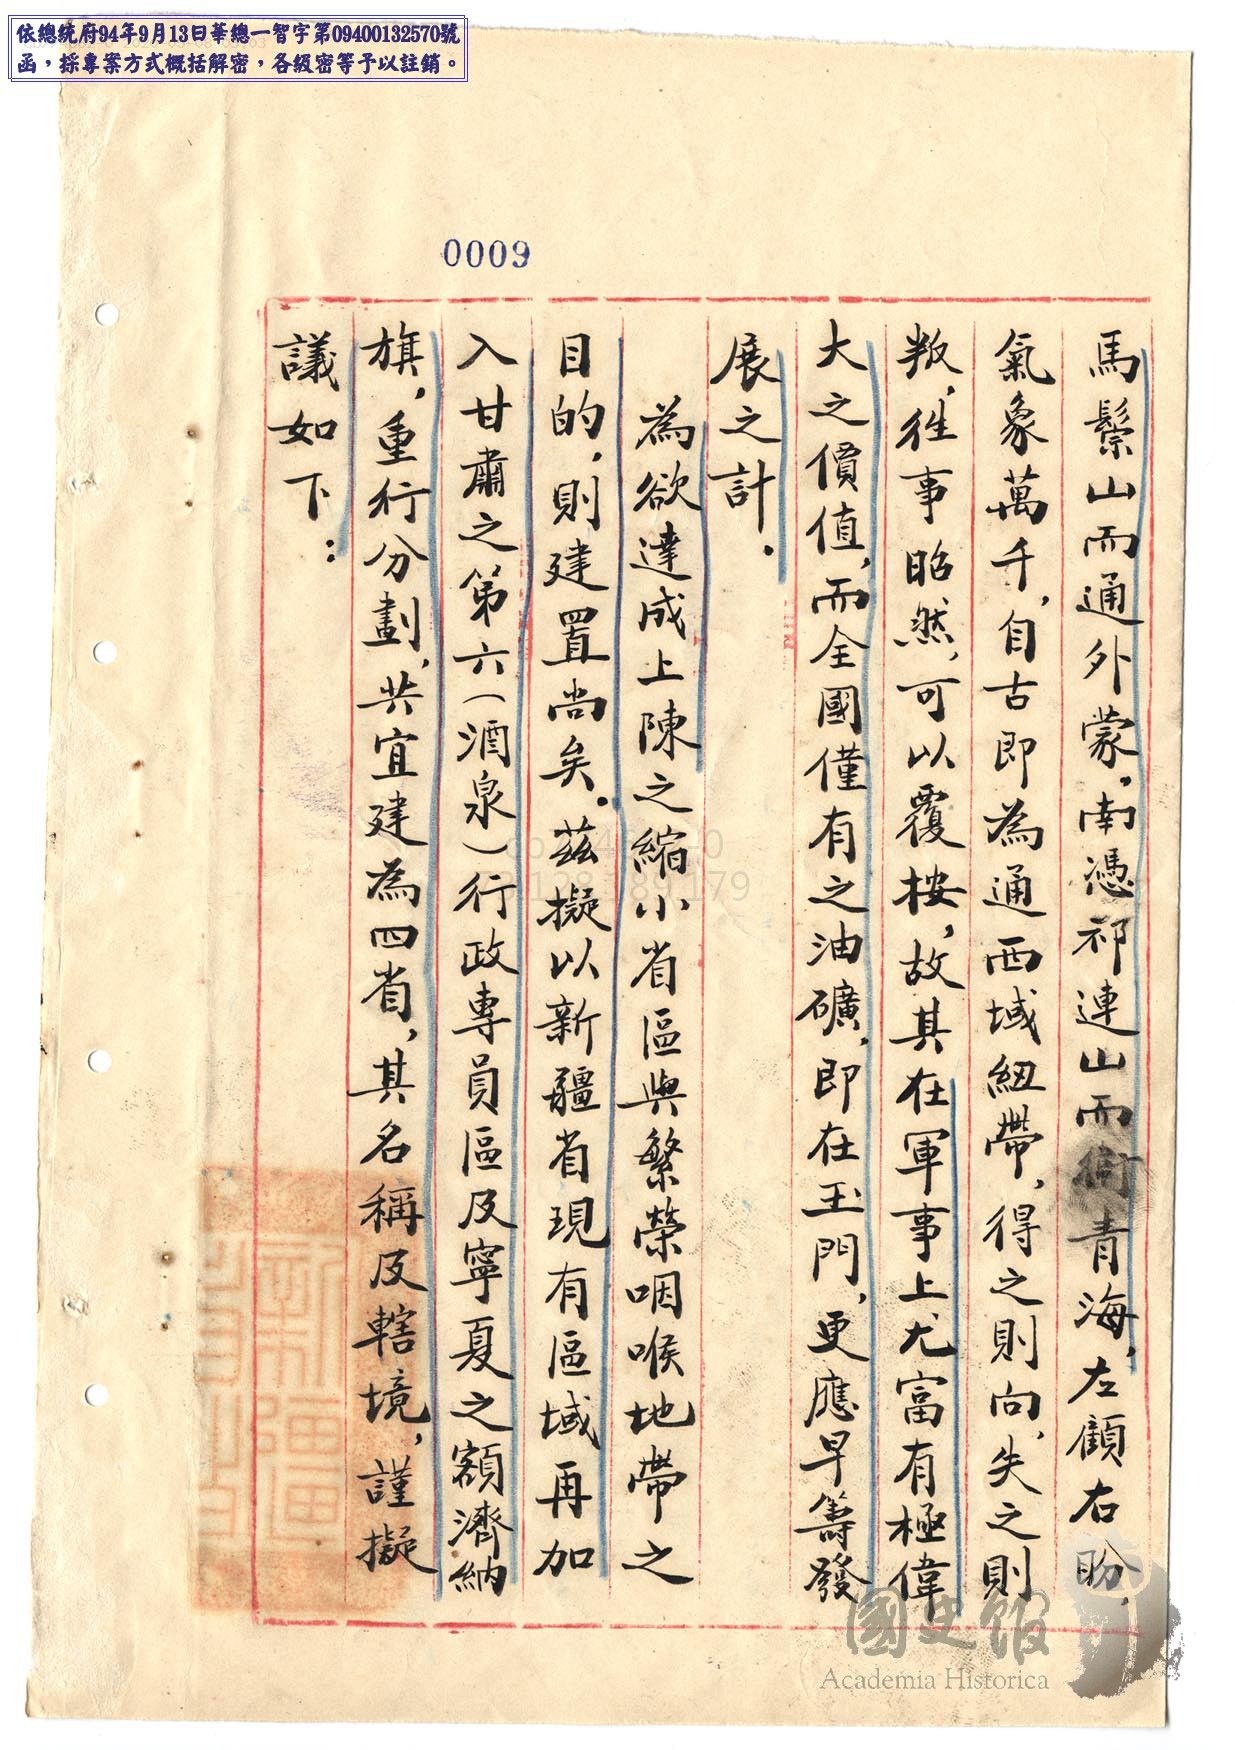 依總統府94年9月13日華總一智字第09400132570號
函，採專案方式概括解密，各級密等予以註銷。
0009
馬鬃山而通外蒙，南憑祁連山而衝青海，左顧右盼，
氣象萬千，自古即為通西域紐帶，得之則向，失之則
叛，往事昭然，可以覆按，故其在軍事上尤富有極偉
大之價值，而全國僅有之油礦，即在玉門，更應早籌發
展之計．
為欲達成上陳之縮小省區與繁榮咽喉地帶之
目的，則建置尚矣．茲擬以新疆省現有區域再加
入甘肅之第六（酒泉）行政專員區及寧夏之額濟納
旗，重行分劃，共宜建為四省，其名稱及轄境，謹擬
議如下：
國史館
Academia Historica